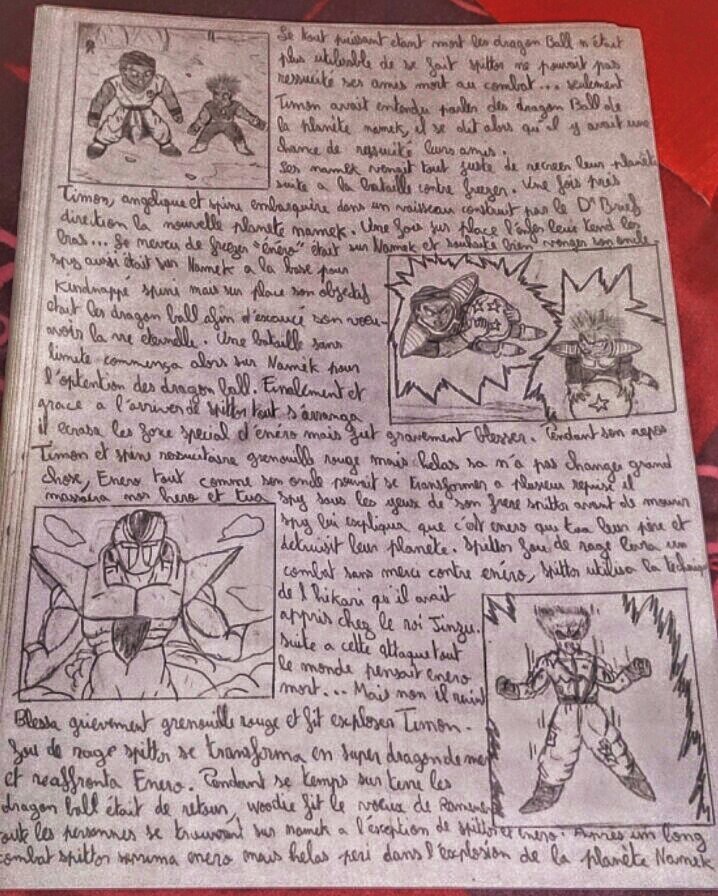 Le tout puissant etant mort les dragon Ball n'était
plus utilisable de se fait spittor ne pouvait pas
ressucité ses amis mort au combat... seulement
Timon avait entendu parler des dragon Ball de
la planète namek, il se dit alors qu'il y avait une
chance de ressucité leurs amis.
Les namek venait tout juste de recreer leur planète
suite a la bataille contre freezer. Une fois près
Timon, angelique et spine embarquère dans un vaisseau construit par le Dr Brief
direction la nouvelle planète namek. Une fois sur place l'enfer leur tend les
bras... Le neveu de freezer "énéro" était sur Namek et souhaite bien venger son oncle,
spy aussi était sur Namek a la base pour
Kindnappé spine mais sur place son objectif
était les dragon ball afin d'exaucé son voeu
avoir la vie eternelle. Une bataille sans
limite commença alors sur Namek pour
l'optention des dragon ball. Finalement et
grace a l'arriver de spittor tout s'arranga
il ecrasa les force special d'enéro mais fut gravement blesser. Pendant son repos
Timon et spine ressucitaire grenouille rouge mais helas sa n'a pas changer grand
chose, Enero tout comme son oncle pouvait se transformer a plusieur repris, il
massacra nos hero et tua spy sous les yeux de son frere spittor avant de mourir
spy lui expliqua que c'est enero qui tua leur père et
detruisit leur planète. Spittor fou de rage livra un
combat sans merci contre enéro, spittor utilisa la technique
de l'hikari qu'il avait
appris chez le roi Jinzu.
Suite a cette attaque tout
le monde pensait enero
mort... Mais non il revint
Blessa grievement grenouille rouge et fit exploser Timon.
fou de rage spittor se transforma en super dragon de
et reaffronta Enero. Pendant se temps sur terre les
dragon ball était de retour, woodie fit le voeux de
toute les personnes se trouvant sur namek a l'exception de spittor et enero. Après un long
combat spittor suprima enero mais helas peri dans l'explosion de la planète Namek